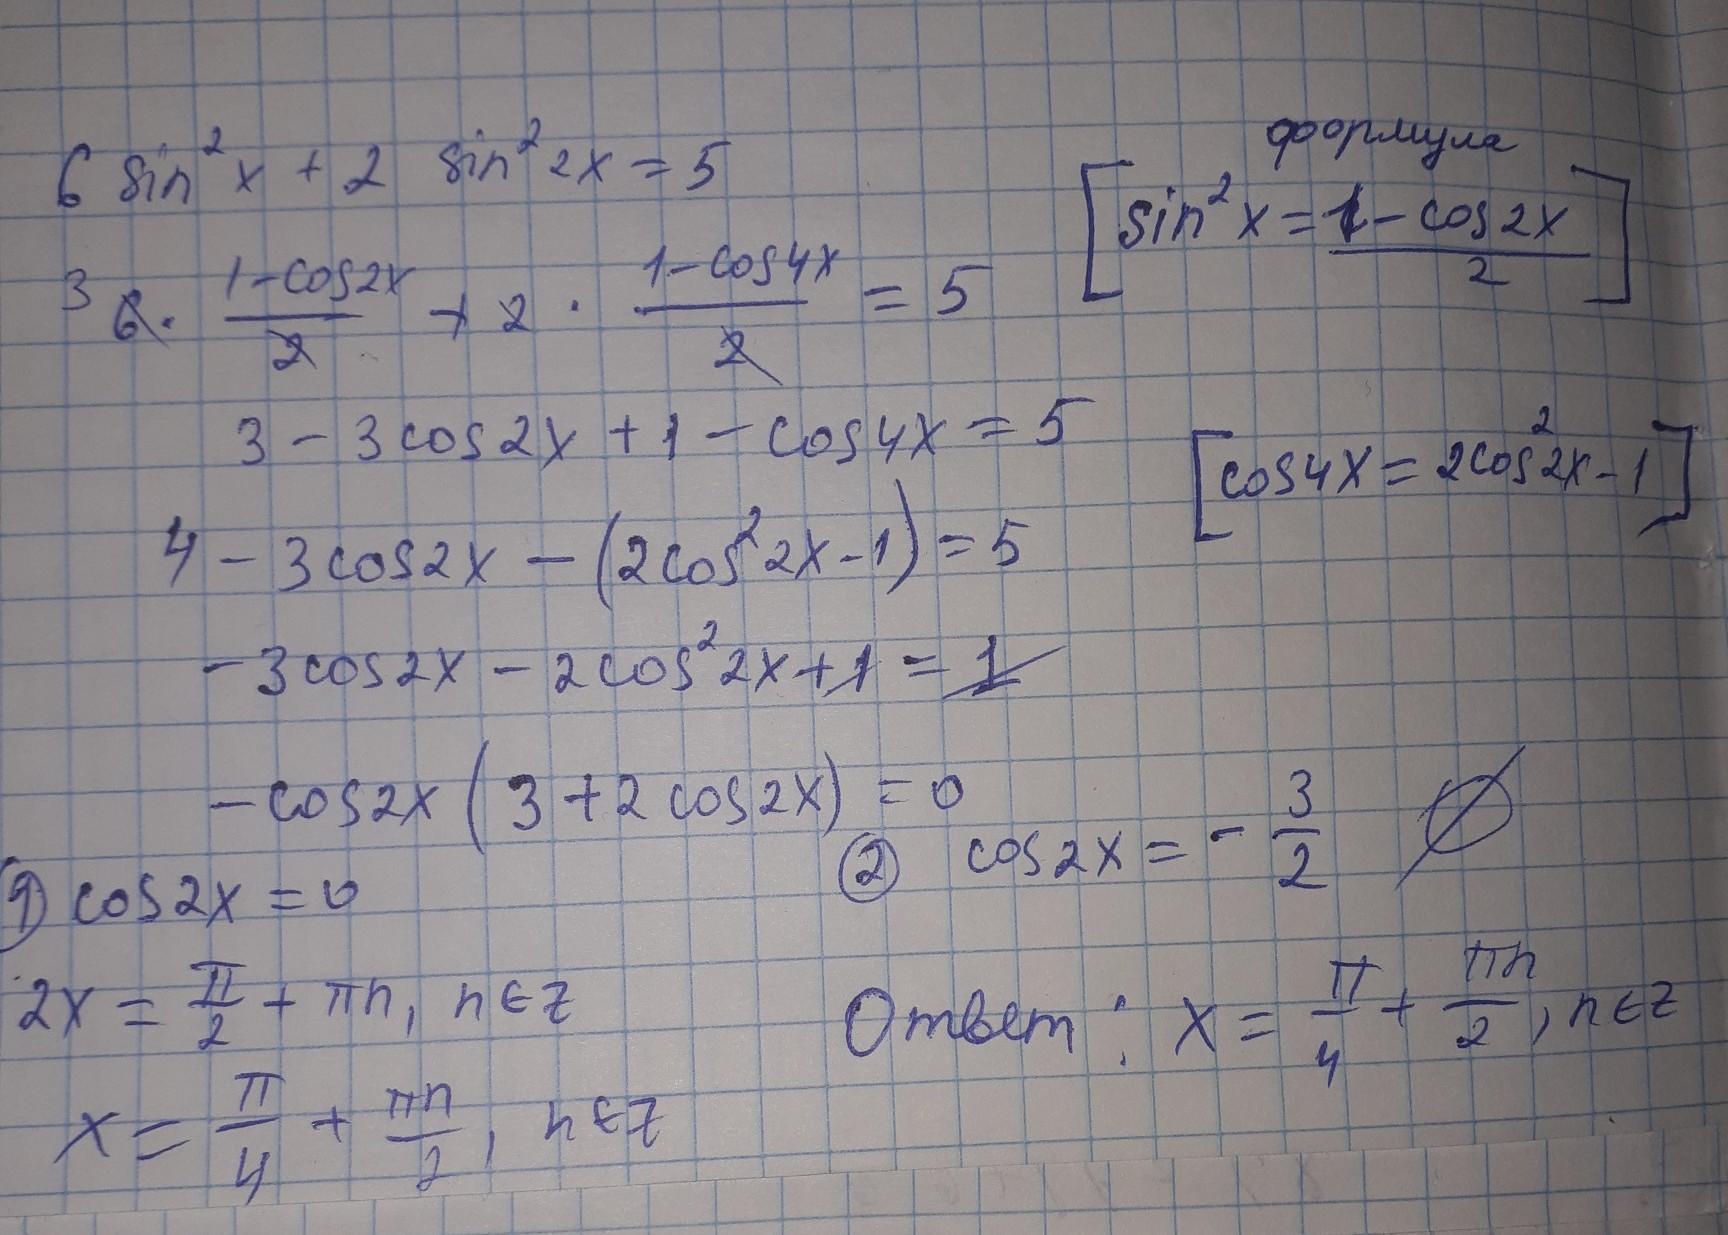 6 sin²x + 2 sin²2x = 5
формула
[sin²x = (1 - cos2x)/2]
3 6 · (1-cos2x)/2 + 2 · (1-cos4x)/2 = 5
3 - 3cos2x + 1 - cos4x = 5
[cos4x = 2cos²2x - 1]
4 - 3cos2x - (2cos²2x - 1) = 5
-3cos2x - 2cos²2x + 1 = 1
-cos2x (3 + 2cos2x) = 0
1) cos2x = 0
② cos2x = - 3/2 ∅
2x = π/2 + πn, n∈Z
x = π/4 + πn/2, n∈Z
Ответ: x = π/4 + πn/2, n∈Z